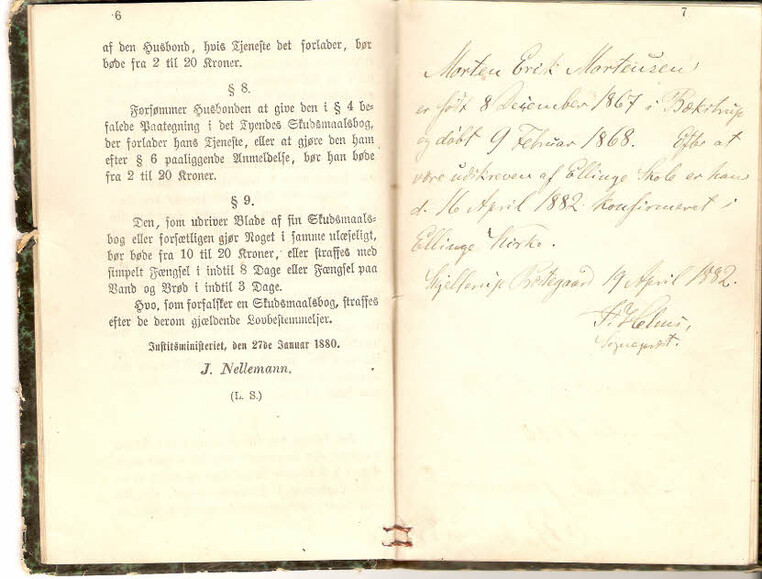 6
af den Husbond, hvis Tjeneste det forlader, bør
bøde fra 2 til 20 Kroner.
§ 8.
Forsømmer Husbonden at give den i § 4 be-
falede Paategning i det Tyendes Skudsmaalsbog,
der forlader hans Tjeneste, eller at gjøre den ham
efter § 6 paaliggende Anmeldelse, bør han bøde
fra 2 til 20 Kroner.
§ 9.
Den, som udriver Blade af sin Skudsmaals-
bog eller forsætligen gjør Noget i samme ulæseligt,
bør bøde fra 10 til 20 Kroner, eller straffes med
simpelt Fængsel i indtil 8 Dage eller Fængsel paa
Vand og Brød i indtil 3 Dage.
Hvo, som forfalsker en Skudsmaalsbog, straffes
efter de derom gjældende Lovbestemmelser.
Justitsministeriet, den 27de Januar 1880.
J. Nellemann.
(L. S.)
7
Morten Erik Mortensen,
er født 8 December 1867 i Bækstrup
og døbt 9 Februar 1868. Efter at
være udskreven af Ellinge Skole er han
d. 16 April 1882 konfirmeret i
Ellinge Kirke.
19 April 1882.
F. Helms,
Sognepræst.